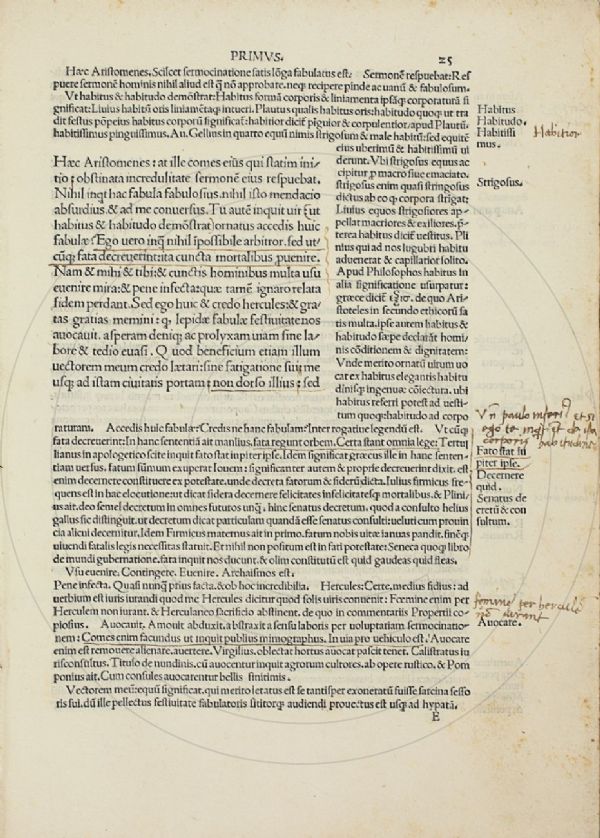 PRIMVS. 25
Hæc Aristomenes. Scilicet sermocinatione satis lōga fabulatus est. Sermonē respuebat: Res
puere sermonē hominis nihil aliud est q̄ nō approbate. neq; recipere pinde ac uanū & fabulosum.
Vt habitus & habitudo demōstrat: Habitus formā corporis & liniamenta ipsāq; corporaturā si
gnificat: Liuius habitū oris liniamētaq; intueri. Plautus qualis habitus oris: habitudo quoq; ut tra
dit festus pōpeius habitus corporū significat: habitior dicit piguior & corpulentior, apud Plautū
habitissimus pinguissimus. An. Gellius in quarto equū nimis strigosum & male habitū: sed equitē
eius uberrimū & habitissimū ui
derunt. Vbi strigosus equus ac
cipitur p macro siue emaciato.
strigosus enim quasi stringosus
dictus ab eo q corpora strigat;
Liuius equos strigosiores ap-
pellat macriores & exiliores. p̄-
terea habitus dicit uestitus. Pli
nius qui ad nos lugubri habitu
aduenetat & capillatior solito.
Apud Philosophos habitus in
alia significatione usurpatur:
græce dicit de quo Aris-
toteles in secundo ethicorū sa
tis multa. ipse autem habitus &
habitudo sæpe declarāt homi-
nis cōditionem & dignitatem:
Vnde merito ornatū uirum uo
cat ex habitus elegantis habitu
dinisq; ingenuæ cōiectura. ubi
habitus referri potest ad uesti-
tum quoq; habitudo ad corpo
Hæc Aristomenes: at ille comes eius qui statim ini-
tio: obstinata incredulitate sermonē eius respuebat.
Nihil inqt hac fabula fabulosius. nihil isto mendacio
absurdius. & ad me conuersus. Tu autē inquit uir (ut
habitus & habitudo demōstrat) ornatus accedis huic
fabulæ: Ego uero inq̄ nihil ipossibile arbitror. sed ut
cūq; fata decreuerint: ita cuncta mortalibus puenire.
Nam & mihi & tibi: & cunctis hominibus multa usu
euenire mira: & pene infecta: quæ tamē ignaro relata
fidem perdant. Sed ego huic & credo hercules: & gra-
tas gratias memini: q, lepidæ fabulæ festiuitate nos
auocauit. asperam deniq; ac prolyxam uiam sine la-
bore & tedio euasi. Quod beneficium etiam illum
uectorem meum credo lætari: sine fatigatione sui me
usq; ad istam ciuitatis portam: non dorso illius: sed
raturam. Accedis huic fabulæ: Credis ne hanc fabulam: Interrogatiue legendū est. Vt cūq;
fata decreuerint: In hanc sententiā ait manlius. fata regunt orbem. Certa stant omnia lege: Tertul
lianus in apologetico scite inquit fato stat iupiter ipse. Idem significat græcus ille in hanc senten-
tiam uersus. fatum sūmum exuperat Iouem: significanter autem & proprie decreuerint dixit. est
enim decernere constituere ex potestate. unde decreta fatorum & siderū dicta. Iulius firmicus fre-
quens est in hac elocutione: ut dicat sidera decernere felicitates infelicitatesq; mortalibus. & Plini
us ait. deo semel decretum in omnes futuros unq̄. hinc senatus decretum. quod a consulto helius
gallus sic distinguit. ut decretum dicat particulam quandā esse senatus consulti: ueluti cum prouin
cia alicui decernitur. Idem Firmicus maternus ait in primo. fatum nobis uitæ ianuas pandit. sineq;
uiuendi fatalis legis necessitas statuit. Et nihil non positum est in fati potestate: Seneca quoq; libro
de mundi gubernatione. fata inquit nos ducunt, & olim constitutū est quid gaudeas quid fleas.
Vsu euenire. Contingere. Euenire. Archaismos est:
Pene infecta. Quasi nunq̄ prius facta. & ob hoc incredibilia. Hercules: Certe. medius fidius: ad
uerbium est iuris iurandi quod me Hercules dicitur quod solis uiris conuenit: Fœminæ enim per
Herculem non iurant. & Herculaneo sacrificio abstinent. de quo in commentariis Propertii co-
piosius. Auocauit. Amouit abduxit. abstraxit a sensu laboris per uoluptariam sermocinatio-
nem: Comes enim facundus ut inquit publius mimographus. In uia pro uehiculo est. Auocare
enim est remouere alienare. auertere. Virgilius. oblectat hortus auocat pascit tenet. Calistratus iu
risconsultus. Titulo de nundinis. cū auocentur inquit agrorum cultores. ab opere rustico. & Pom
ponius ait. Cum consules auocarentur bellis finitimis.
Vectorem meū: equū significat. qui merito letatus est se tantisper exoneratū fuisse sarcina sesso
ris sui. dū ille pellectus festiuitate fabulatoris stitorq; audiendi prouectus est usq; ad hypatā.
E
Habitus
Habitudo.
Habitissi
mus.
Habitior
Strigosus.
Vn paulo inferi
ego te
corporis habitudine
Fato stat iu
piter ipse.
Decernere
quid.
Senatus de
cretū & con
sultum.
femine per hercule
nō iurant
Auocare.